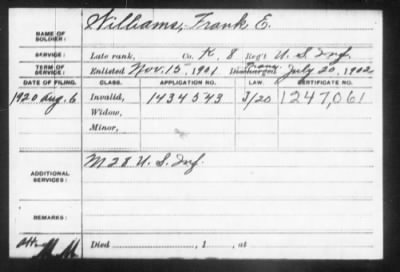 NAME OF SOLDIER: Williams, Frank E.
SERVICE: Late rank, Co. K, 8 Reg't U. S. Inf
TERM OF SERVICE: Enlisted Nov. 15, 1901 Trans. Discharged July 20, 1902
DATE OF FILING. CLASS. APPLICATION NO. LAW. CERTIFICATE NO.
1920 Aug. 6 Invalid, 1434543 J/20 1247,061
Widow,
Minor,
ADDITIONAL SERVICES: M 28 U. S. Inf.
REMARKS:
Died , 1 , at